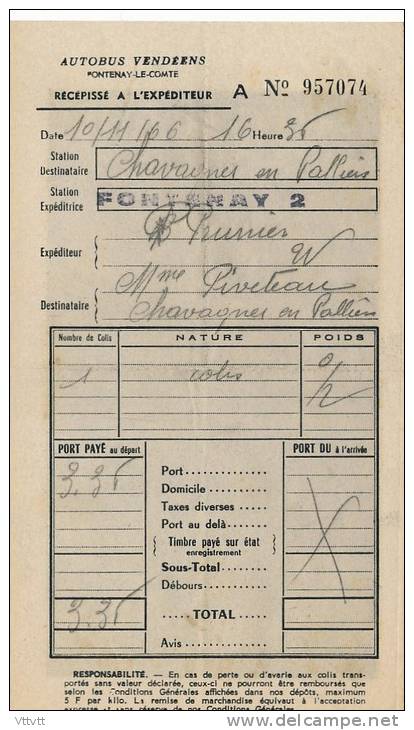 AUTOBUS VENDÉENS
FONTENAY-LE-COMTE
RÉCÉPISSÉ A L'EXPÉDITEUR A Nº 957074
Date 10/11/66 16 Heure 35
Station Destinataire Chavagnes en Palliers
Station Expéditrice FONTENAY 2
Expéditeur Prunier
Mme Piveteau
Destinataire Chavagnes en Palliers
Nombre de Colis NATURE POIDS
1 colis
PORT PAYÉ au départ PORT DU à l'arrivée
3.35 Port
Domicile
Taxes diverses
Port au delà
Timbre payé sur état
enregistrement
Sous-Total
Débours
3.35 TOTAL
Avis
RESPONSABILITÉ. — En cas de perte ou d'avarie aux colis trans-
portés sans valeur déclarée, ceux-ci ne pourront être remboursés que
selon les Conditions Générales affichées dans nos dépôts, maximum
5 F par kilo. La remise de marchandise équivaut à l'acceptation
expresse et sans réserve de nos Conditions Générales.
Vttvtt
delcampe.net